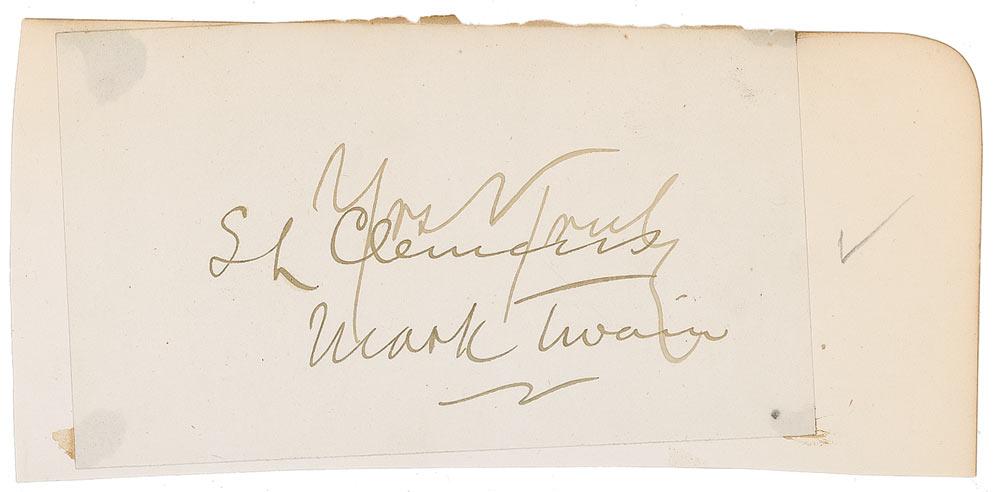 Yrs Truly
SL Clemens
Mark Twain